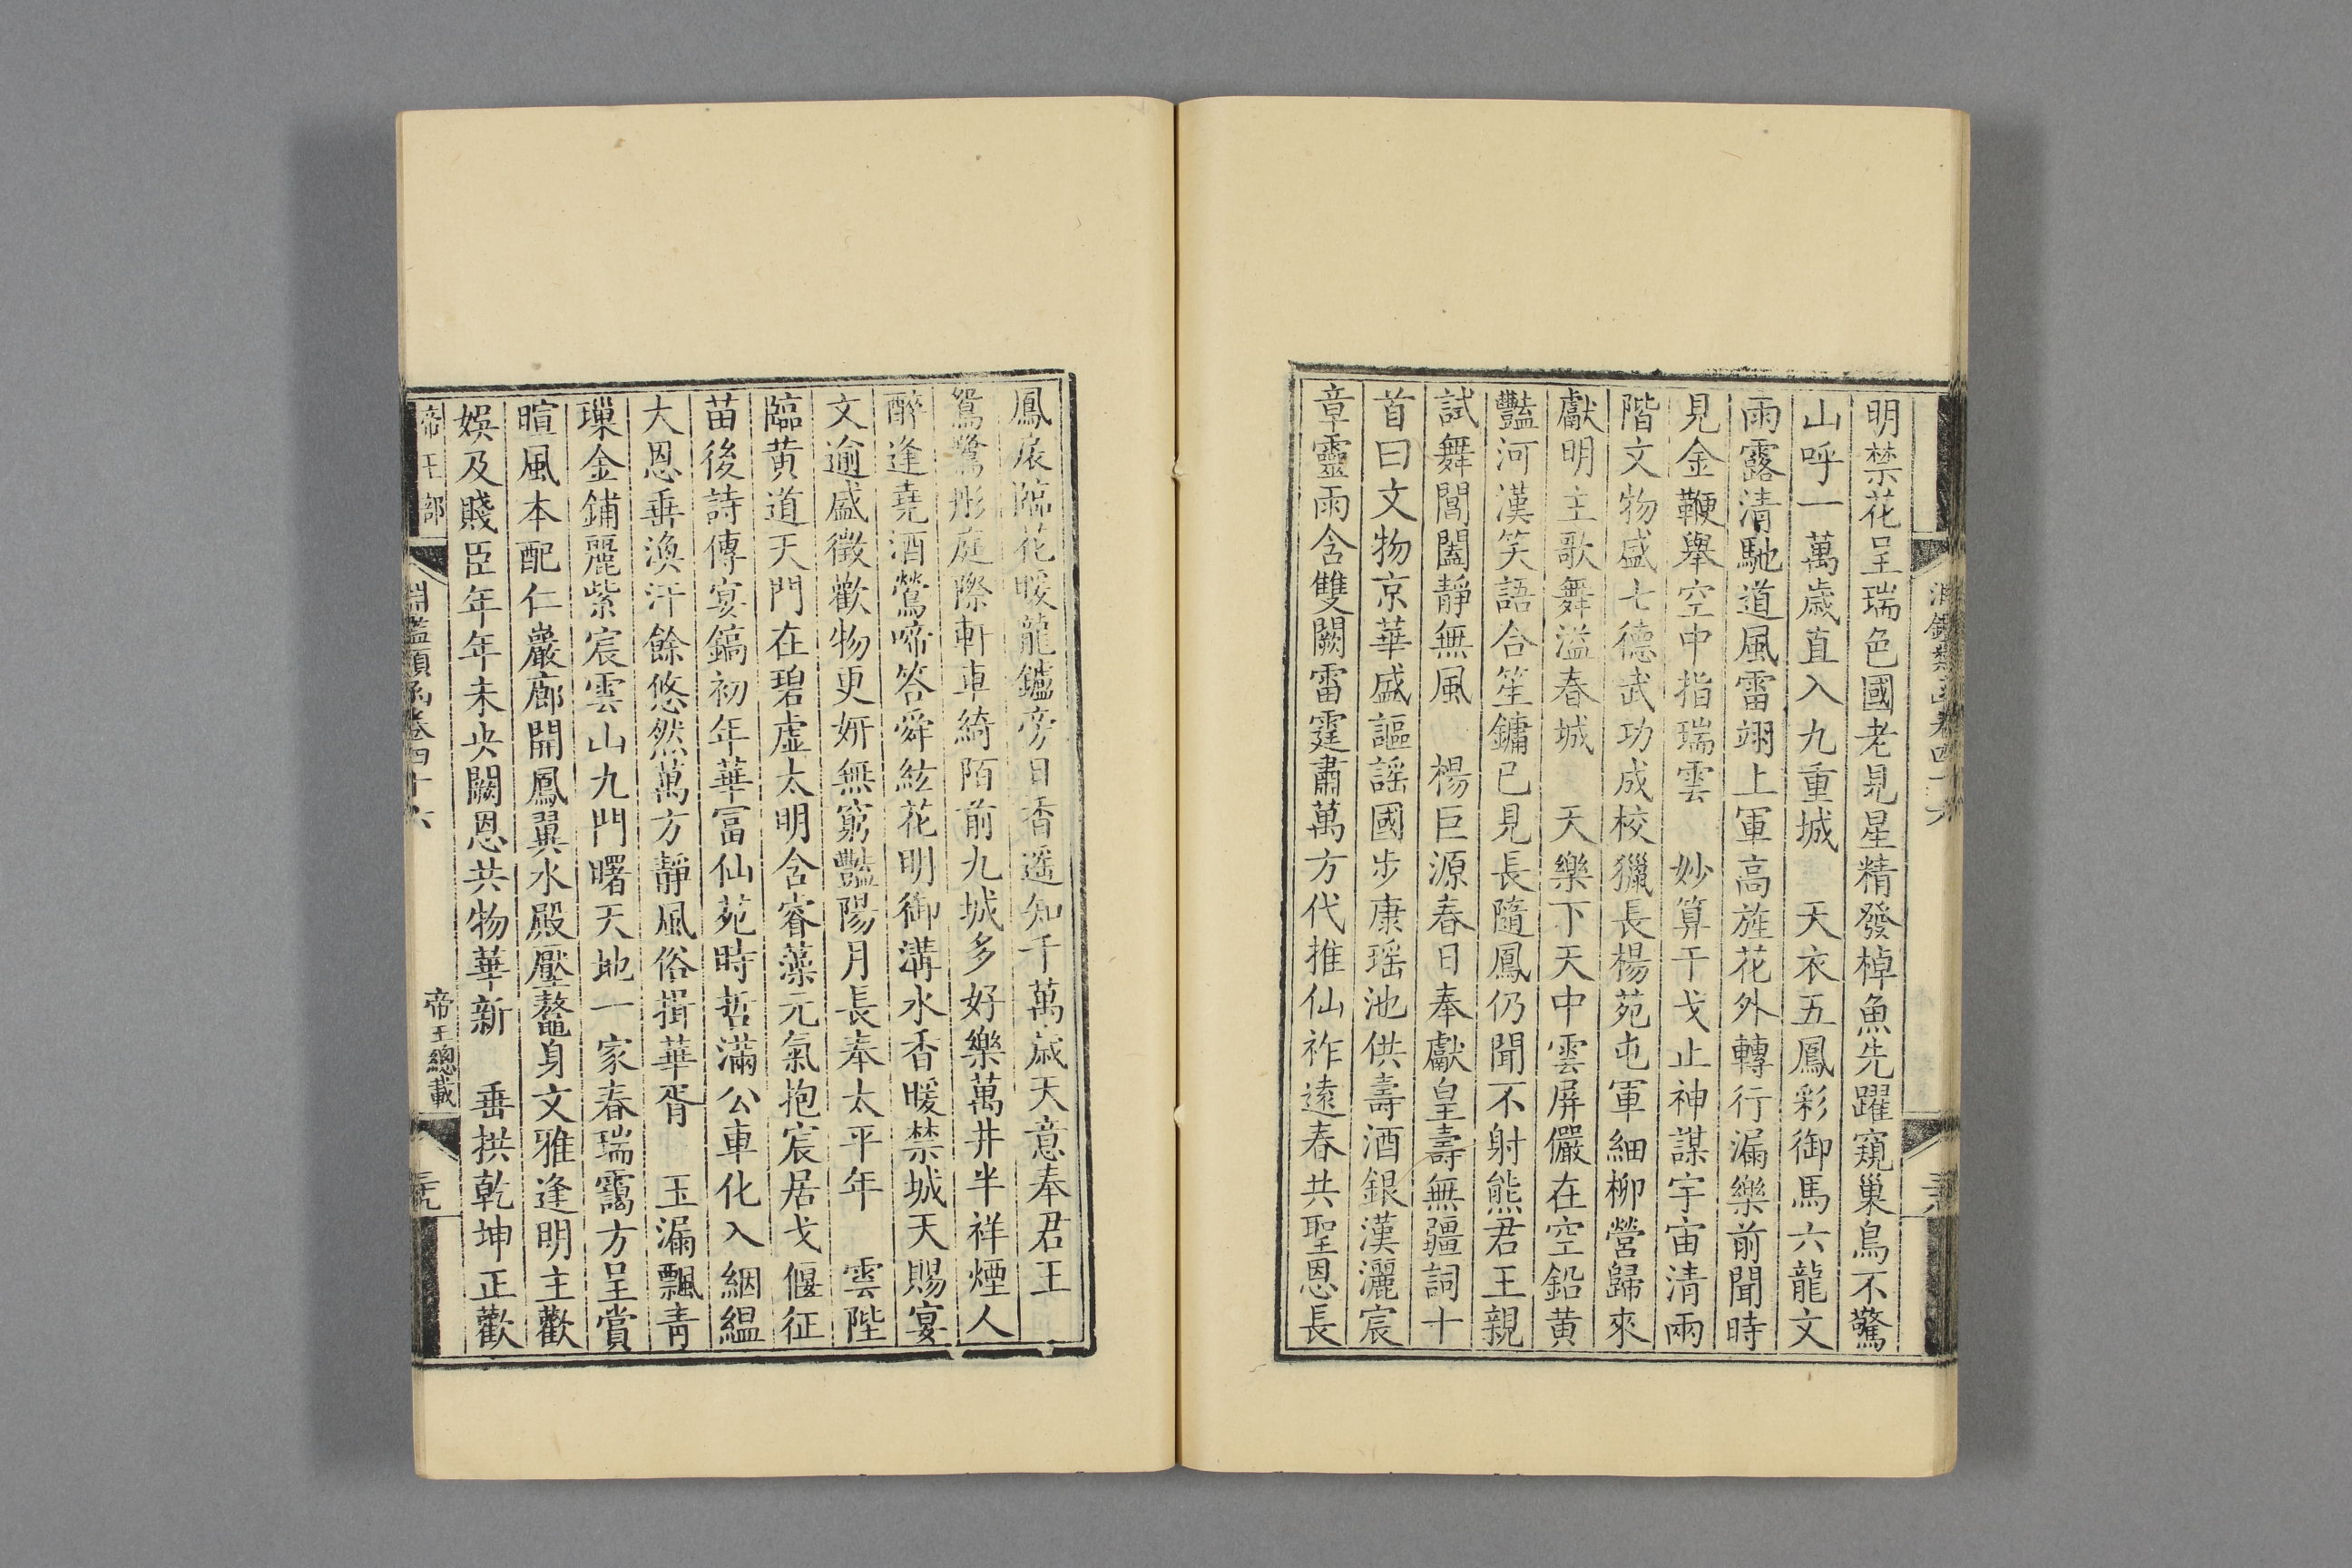 淵鑑類函卷四十六
明禁花呈瑞色國老見星精發棹魚先躍窺巢鳥不驚
山呼一萬歲直入九重城　天衣五鳳彩御馬六龍文
雨露清馳道風雷翊上軍高旌花外轉行漏樂前聞時
見金鞭舉空中指瑞雲　妙算干戈止神謀宇宙清兩
階文物盛七德武功成校獵長楊苑屯軍細柳營歸來
獻明主歌舞溢春城　天樂下天中雲屏儼在空鉛黃
豔河漢笑語合笙鏞已見長隨鳳仍聞不射熊君王親
試舞閶闔靜無風　楊巨源春日奉獻皇壽無疆詞十
首曰文物京華盛謳謠國步康瑤池供壽酒銀漢灑宸
章靈雨含雙闕雷霆肅萬方代推仙祚遠春共聖恩長
鳳扆臨花暖龍鑪旁日香遥知千萬歲天意奉君王
鴛鷺彤庭際軒車綺陌前九城多好樂萬井半祥煙人
醉逢堯酒鶯啼答舜絃花明御溝水香暖禁城天賜宴
文逾盛徵歡物更妍無窮豔陽月長奉太平年　雲陛
臨黃道天門在碧虛太明含睿藻元氣抱宸居戈偃征
苗後詩傳宴鎬初年華富仙苑時哲滿公車化入絪縕
大恩垂渙汗餘悠然萬方靜風俗揖華胥　玉漏飄青
瑣金鋪麗紫宸雲山九門曙天地一家春瑞靄方呈賞
暄風本配仁巖廊開鳳翼水殿壓鼇身文雅逢明主歡
娛及賤臣年年未央闕恩共物華新　垂拱乾坤正歡
帝王部
淵鑑類函卷四十六
帝王總載